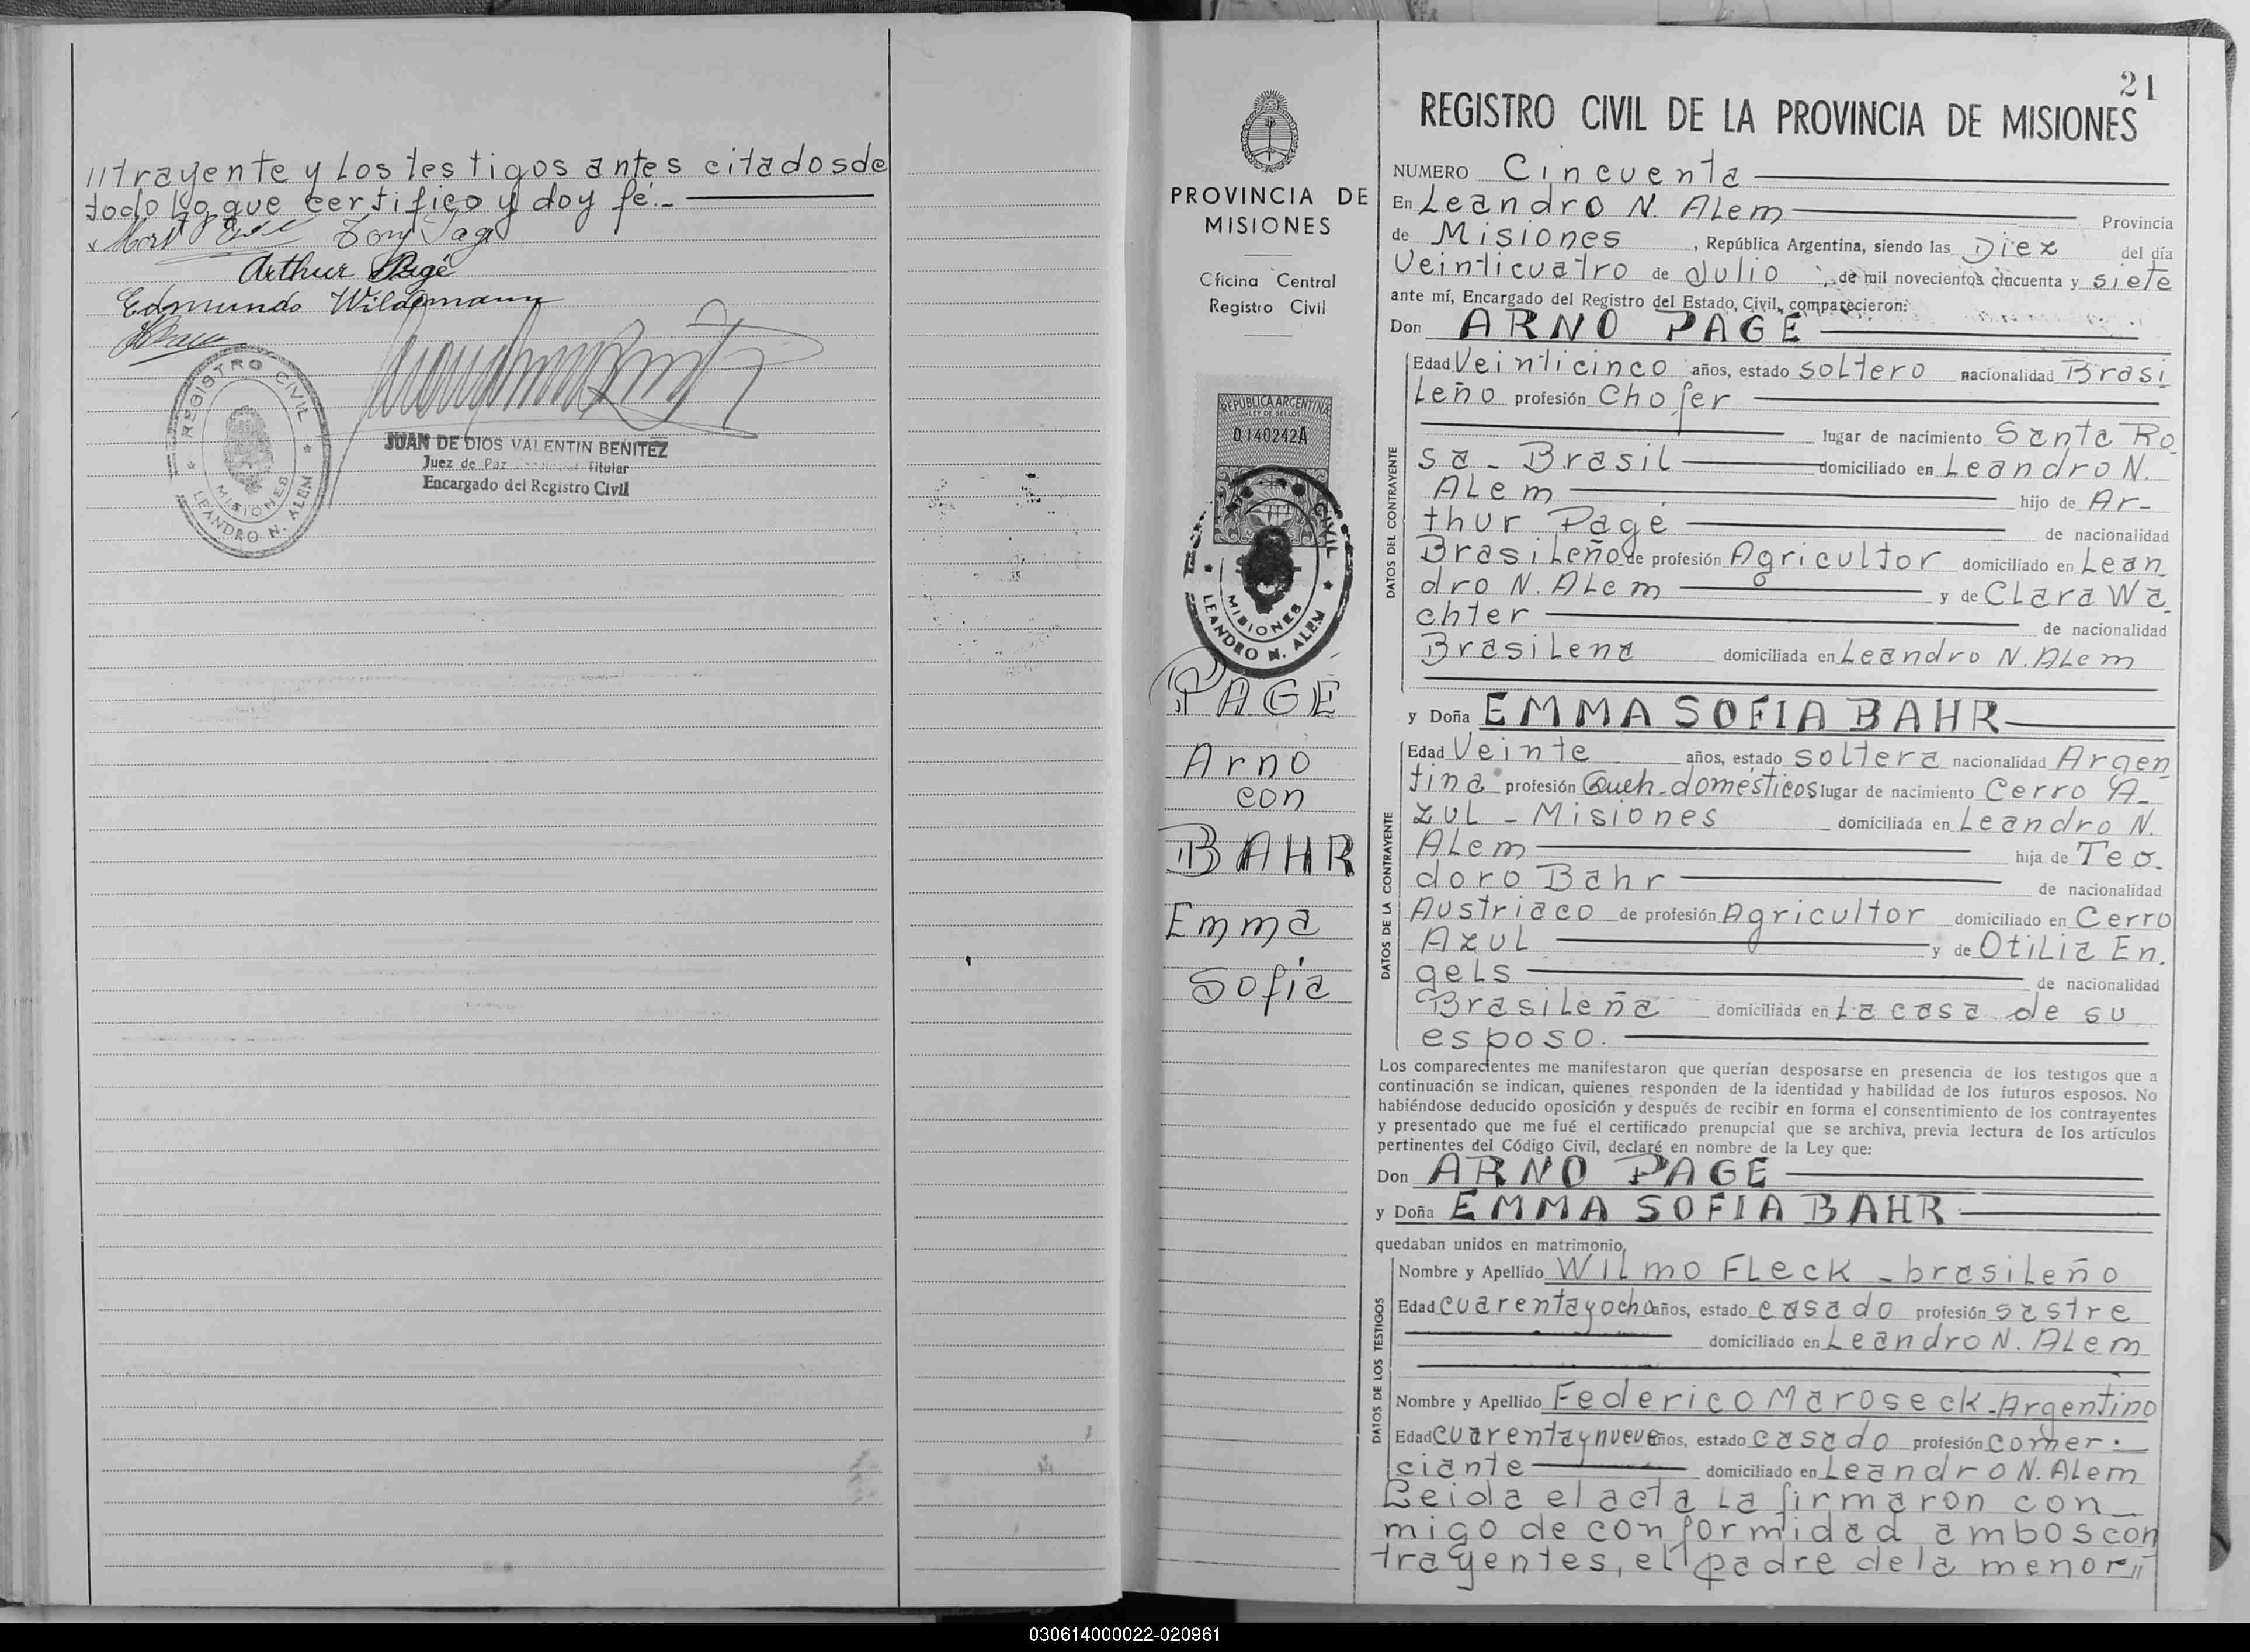 //trayente y los testigos antes citados de
todo lo que certifico y doy fé.-
Arthur Pagé
Edmundo Wildemann
REGISTRO CIVIL
MISIONES
LEANDRO N. ALEM
JUAN DE DIOS VALENTIN BENITEZ
Juez de Paz Titular
Encargado del Registro Civil
PROVINCIA DE
MISIONES
Oficina Central
Registro Civil
REPUBLICA ARGENTINA
LEY DE SELLOS
0.140242A
CIVIL
MISIONES
LEANDRO N. ALEM
PAGE
Arno
con
BAHR
Emma
Sofia
21
REGISTRO CIVIL DE LA PROVINCIA DE MISIONES
NUMERO Cincuenta
En Leandro N. Alem Provincia
de Misiones, República Argentina, siendo las Diez del día
Veinticuatro de Julio de mil novecientos cincuenta y siete
ante mí, Encargado del Registro del Estado Civil, comparecieron:
Don ARNO PAGE
DATOS DEL CONTRAYENTE
Edad Veinticinco años, estado soltero nacionalidad Brasi
leño profesión Chofer
lugar de nacimiento Santa Ro
sa - Brasil domiciliado en Leandro N.
Alem hijo de Ar-
thur Pagé de nacionalidad
Brasileño de profesión Agricultor domiciliado en Lean
dro N. Alem y de Clara Wa
chter de nacionalidad
Brasilena domiciliada en Leandro N. Alem
y Doña EMMA SOFIA BAHR
DATOS DE LA CONTRAYENTE
Edad Veinte años, estado soltera nacionalidad Argen
tina profesión Queh. domésticos lugar de nacimiento Cerro A-
zul - Misiones domiciliada en Leandro N.
Alem hija de Teo-
doro Bahr de nacionalidad
Austriaco de profesión Agricultor domiciliado en Cerro
Azul y de Otilia En.
gels de nacionalidad
Brasileña domiciliada en La casa de su
esposo.
Los comparecientes me manifestaron que querían desposarse en presencia de los testigos que a
continuación se indican, quienes responden de la identidad y habilidad de los futuros esposos. No
habiéndose deducido oposición y después de recibir en forma el consentimiento de los contrayentes
y presentado que me fué el certificado prenupcial que se archiva, previa lectura de los artículos
pertinentes del Código Civil, declaré en nombre de la Ley que:
Don ARNO PAGE
y Doña EMMA SOFIA BAHR
quedaban unidos en matrimonio.
DATOS DE LOS TESTIGOS
Nombre y Apellido Wilmo Fleck - brasileño
Edad cuarenta y ocho años, estado casado profesión sastre
domiciliado en Leandro N. Alem
Nombre y Apellido Federico Maroseck - Argentino
Edad cuarenta y nueve años, estado casado profesión comer.
ciante domiciliado en Leandro N. Alem
Leida el acta la firmaron con
migo de conformidad ambos con
trayentes, el padre de la menor//
030614000022-020961